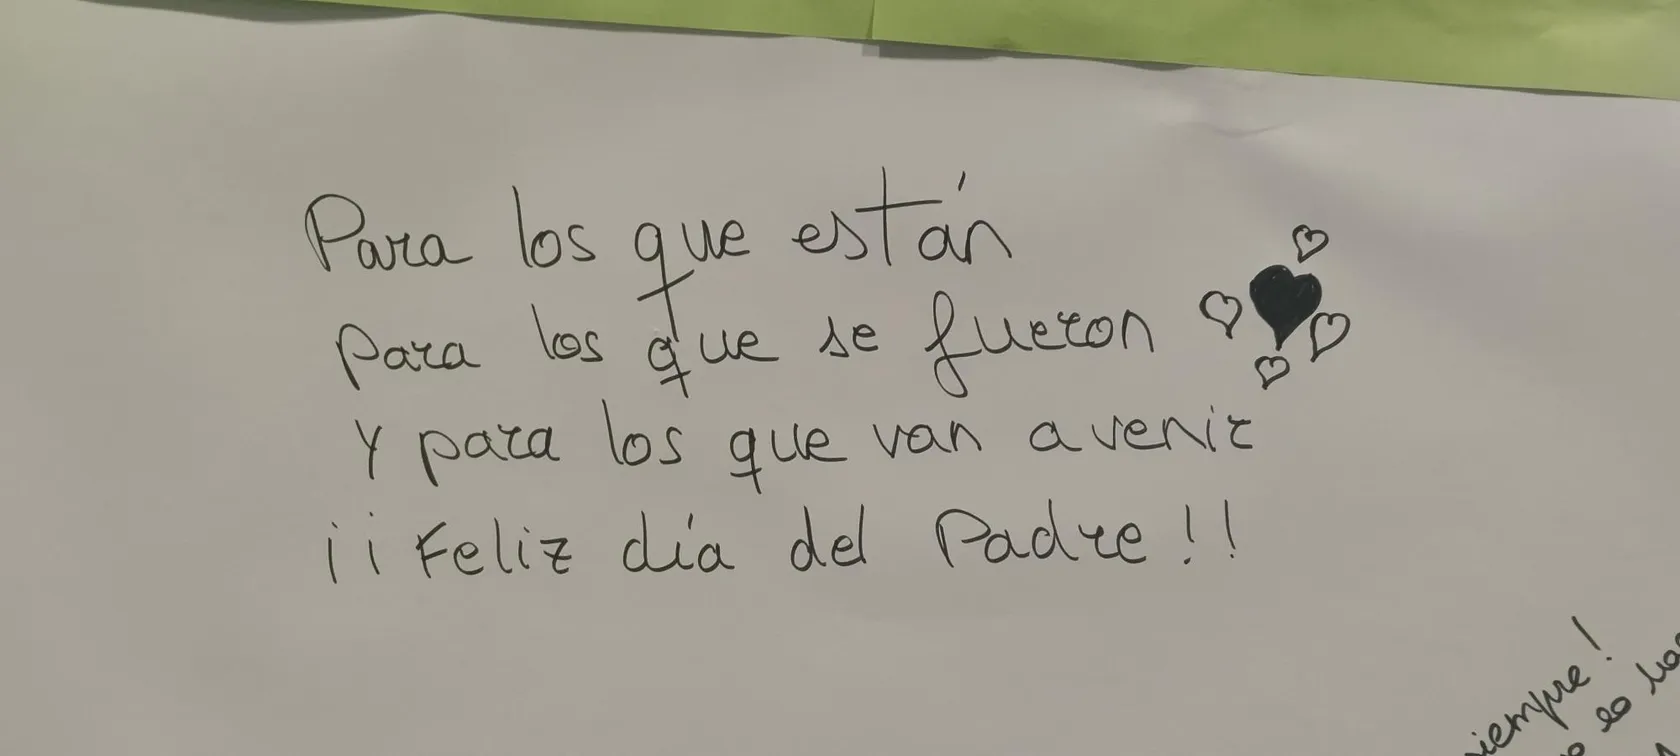 Para los que están
para los que se fueron
y para los que van a venir
¡¡Feliz día del Padre!!
siempre!